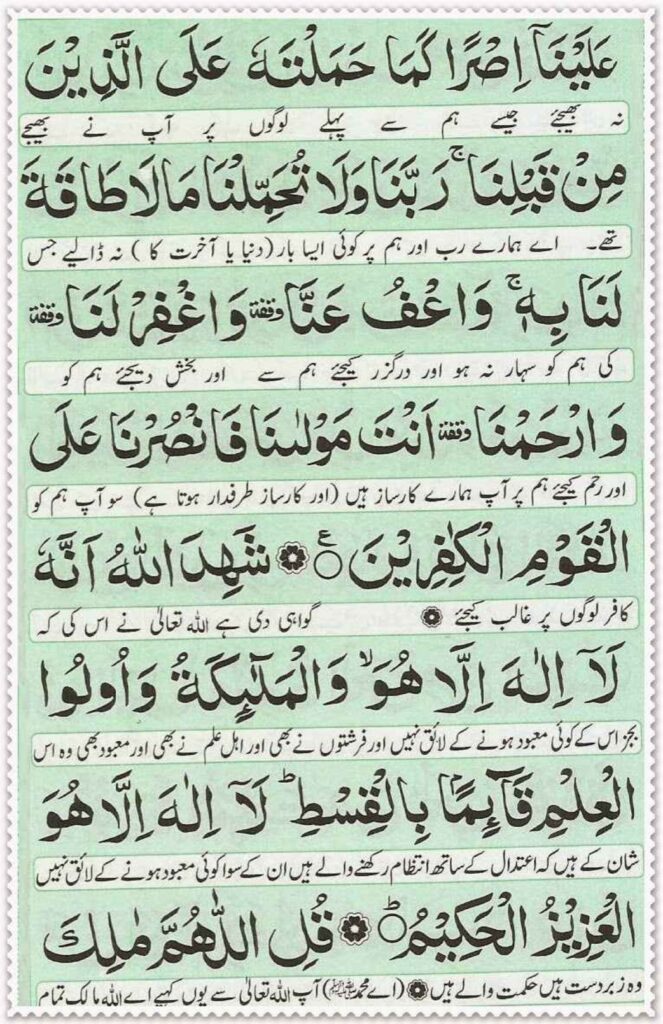 عَلَيْنَاۤ اِصْرًا كَمَا حَمَلْتَهٗ عَلَى الَّذِيْنَ
نہ بھیجئے جیسے ہم سے پہلے لوگوں پر آپ نے بھیجے
مِنْ قَبْلِنَا ۚ رَبَّنَا وَلَا تُحَمِّلْنَا مَا لَا طَاقَةَ
تھے۔ اے ہمارے رب اور ہم پر کوئی ایسا بار (دنیا یا آخرت کا) نہ ڈالیے جس
لَنَا بِهٖ ۚ وَاعْفُ عَنَّا وقفة وَاغْفِرْ لَنَا وقفة
کی ہم کو سہار نہ ہو اور درگزر کیجئے ہم سے اور بخش دیجئے ہم کو
وَارْحَمْنَا وقفة اَنْتَ مَوْلٰىنَا فَانْصُرْنَا عَلَى
اور رحم کیجئے ہم پر آپ ہمارے کارساز ہیں (اور کارساز طرفدار ہوتا ہے) سو آپ ہم کو
الْقَوْمِ الْكٰفِرِيْنَ ۝ع شَهِدَ اللّٰهُ اَنَّهٗ
کافر لوگوں پر غالب کیجئے گواہی دی ہے اللہ تعالیٰ نے اس کی کہ
لَاۤ اِلٰهَ اِلَّا هُوَ ۙ وَالْمَلٰٓئِكَةُ وَاُولُوا
بجز اس کے کوئی معبود ہونے کے لائق نہیں اور فرشتوں نے بھی اور اہل علم نے بھی اور معبود بھی وہ اس
الْعِلْمِ قَآئِمًۢا بِالْقِسْطِ ؕ لَاۤ اِلٰهَ اِلَّا هُوَ
شان کے ہیں کہ اعتدال کے ساتھ انتظام رکھنے والے ہیں ان کے سوا کوئی معبود ہونے کے لائق نہیں
الْعَزِيْزُ الْحَكِيْمُ ۝ؕ قُلِ اللّٰهُمَّ مٰلِكَ
وہ زبردست ہیں حکمت والے ہیں (اے محمد ﷺ) آپ اللہ تعالیٰ سے یوں کہیے اے اللہ مالک تمام